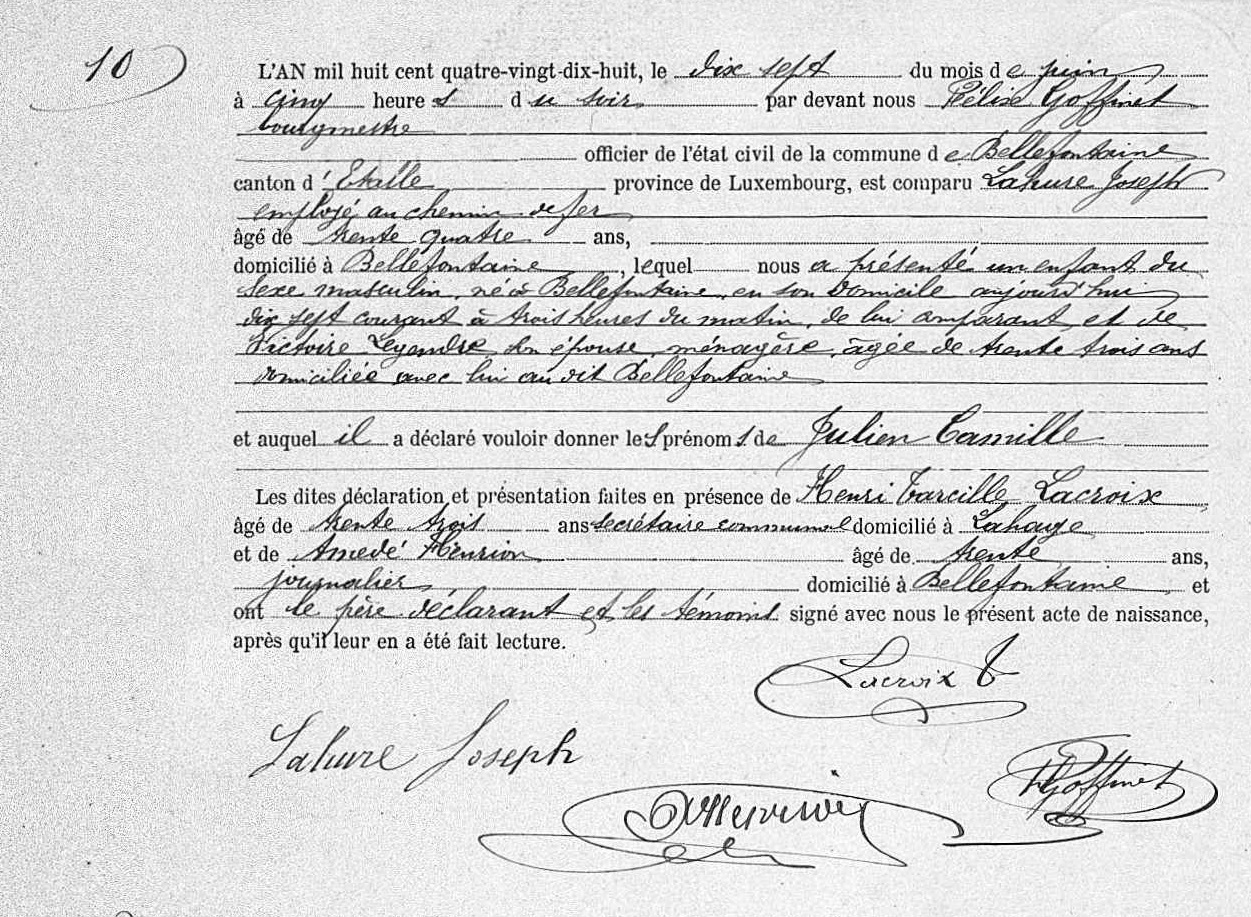 10
L'AN mil huit cent quatre-vingt-dix-huit, le dix sept du mois de juin
à cinq heures du soir par devant nous Félix Goffinet
bourgmestre
officier de l'état civil de la commune de Bellefontaine
canton d'Etalle province de Luxembourg, est comparu Lahure Joseph
employé au chemin de fer
âgé de trente quatre ans,
domicilié à Bellefontaine, lequel nous a présenté un enfant du
sexe masculin, né à Bellefontaine, en son domicile aujourd'hui
dix sept courant à trois heures du matin, de lui comparant et de
Victoire Legendre, son épouse, ménagère, âgée de trente trois ans
domiciliée avec lui au dit Bellefontaine
et auquel il a déclaré vouloir donner les prénoms de Julien Camille
Les dites déclaration et présentation faites en présence de Henri Tarcille Lacroix
âgé de trente trois ans secrétaire communal domicilié à Lahage
et de Amedé Henrion âgé de trente ans,
journalier domicilié à Bellefontaine et
ont le père déclarant et les témoins signé avec nous le présent acte de naissance,
après qu'il leur en a été fait lecture.
Lacroix T
Lahure Joseph
Goffinet